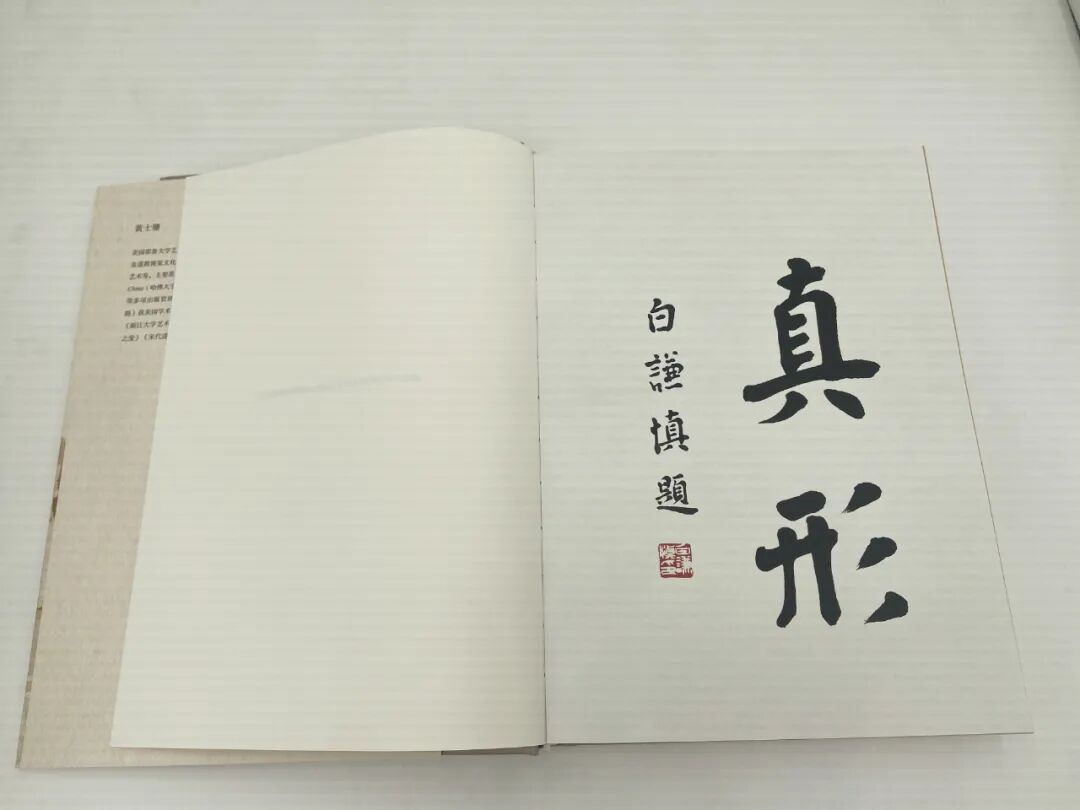 黄士珊
美国耶鲁大学艺
及道教视觉文化
艺术等。主要著
China（哈佛大学
等多项出版资助
路》获美国学术
《浙江大学艺术
之变》《宋代道
真形
白謙慎題